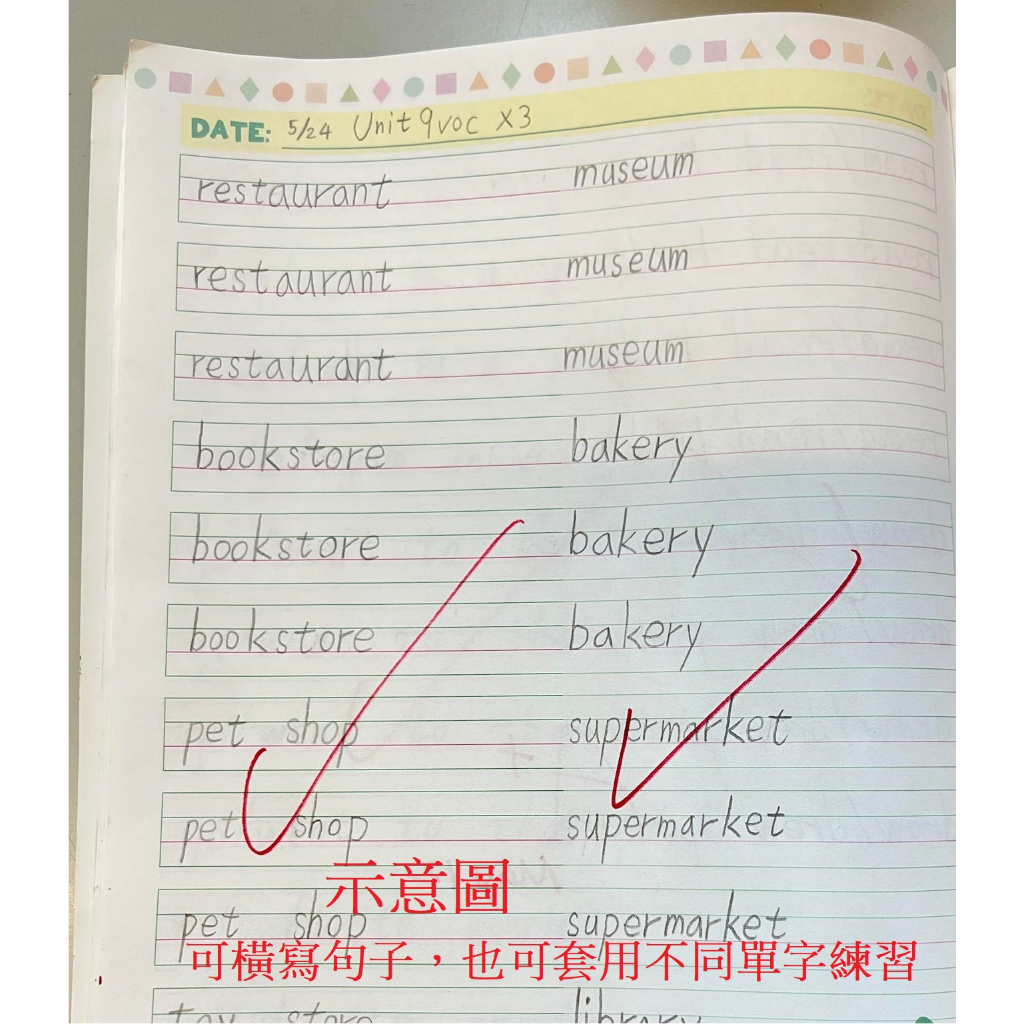 DATE: 5/24 Unit 9 voc X3
restaurant museum
restaurant museum
restaurant museum
bookstore bakery
bookstore bakery
bookstore bakery
pet shop supermarket
pet shop supermarket
示意圖
pet shop supermarket
可橫寫句子，也可套用不同單字練習
toy store library